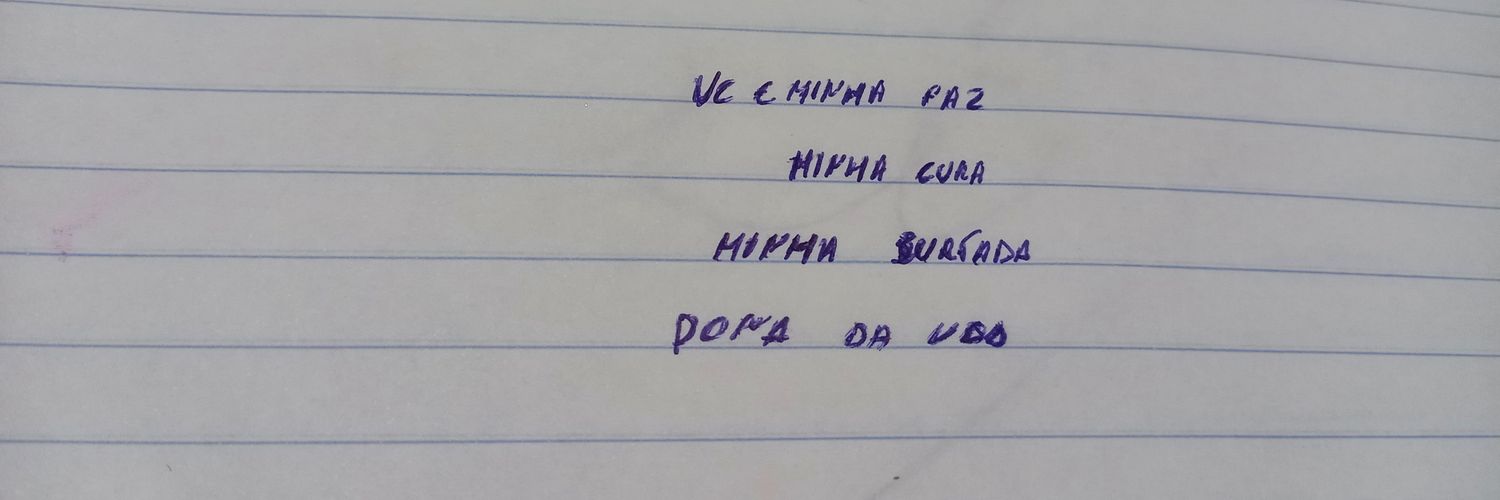 VC E MINHA PAZ
MINHA CURA
MINHA SURTADA
DONA DA VDD